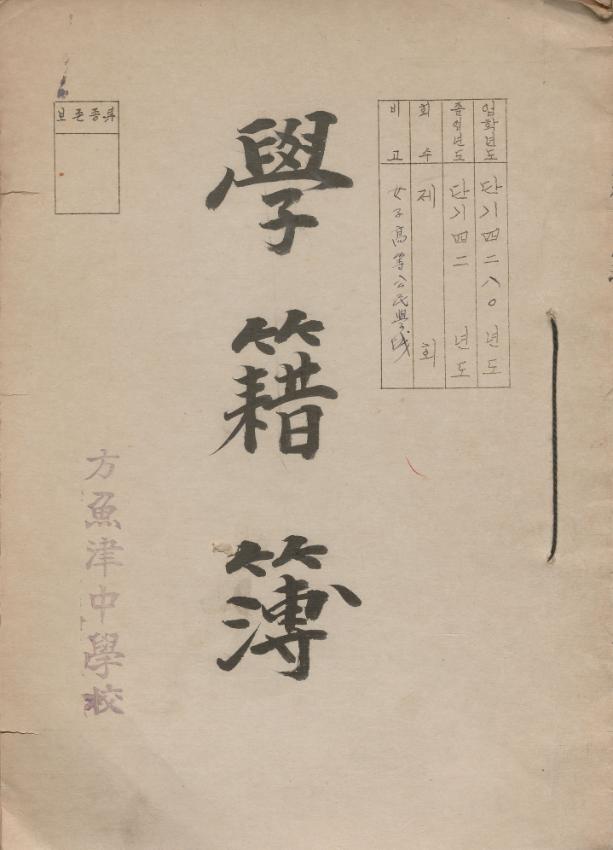 입학년도 단기四二八○년도
졸업년도 단기四二 년도
회수 제 회
비고 女子高等公民學校
學籍簿
보존종류
方魚津中學校